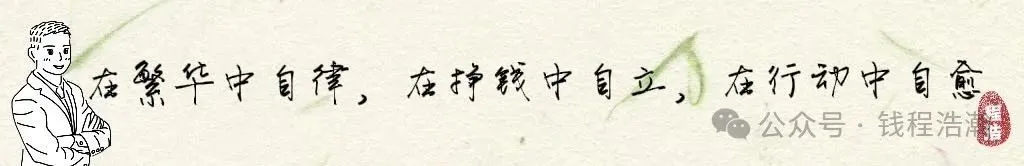 在繁华中自律，在挣钱中自立，在行动中自愈
公众号·钱程浩瀚